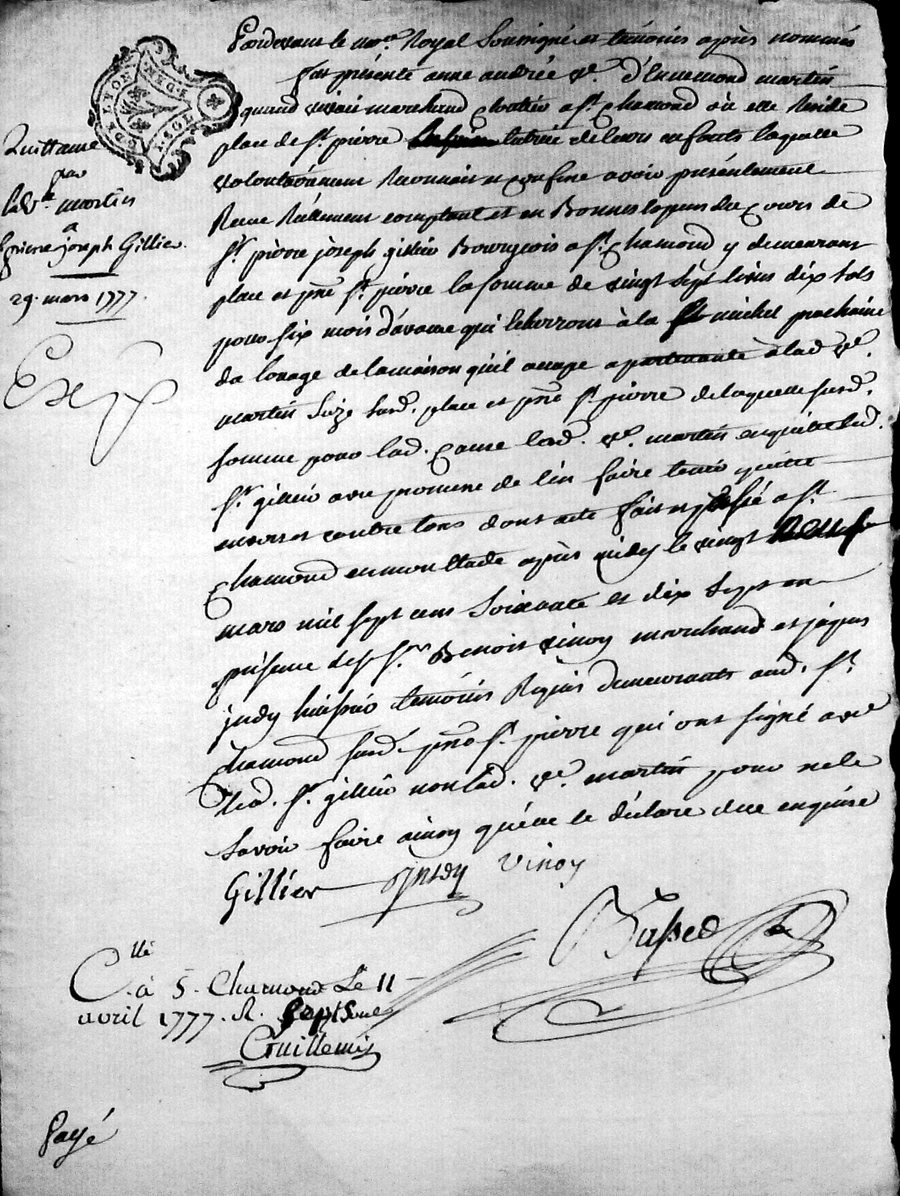 GDE LYON NEGE
1 SOL
Quittance
par
la ve. martin
a
pierre joseph Gillier.
29. mars 1777.
Ex
Pardevant le nore. Royal Soussigné et temoins après nommés
fut présente anne andrée ve. d'Ennemond martin
quand vivoit marchand a st. chamond où elle Reside
place de st. pierre tutrice de leurs enfants laquelle
volontairement Reconnait et confesse avoir présentement
Receu Réellement comptant et en Bonnes especes du cours de
sr. pierre joseph gillier Bourgeois a st. chamond y demeurant
place et psse st. pierre la somme de vingt sept livres dix sols
pour six mois d'avance qui echerront à la st michel prochaine
du louage de la maison qu'il occupe apartenante à lad. ve.
martin size susd. place et psse st. pierre de laquelle susd.
somme pour lad. cause lad. ve. martin en quitte led.
sr. gillier avec promesse de l'en faire tenir quitte
envers et contre tous dont acte fait et passé a st.
chamond en mon etude après midy le vingt neuf
mars mil sept cens soixante et dix sept en
présence des srs. Benoit vinoy marchand et
judy huissier temoins Requis demeurants aud. st.
chamond susd. psse st. pierre qui ont signé avec
led. sr. gillier non lad. ve. martin pour ne le
savoir faire ainsy qu'elle le déclare de ce enquise
Gillier Judy Vinoy
Clle
à S. Chamond Le 11
avril 1777. R. Sept sols
Guillemin
Payé